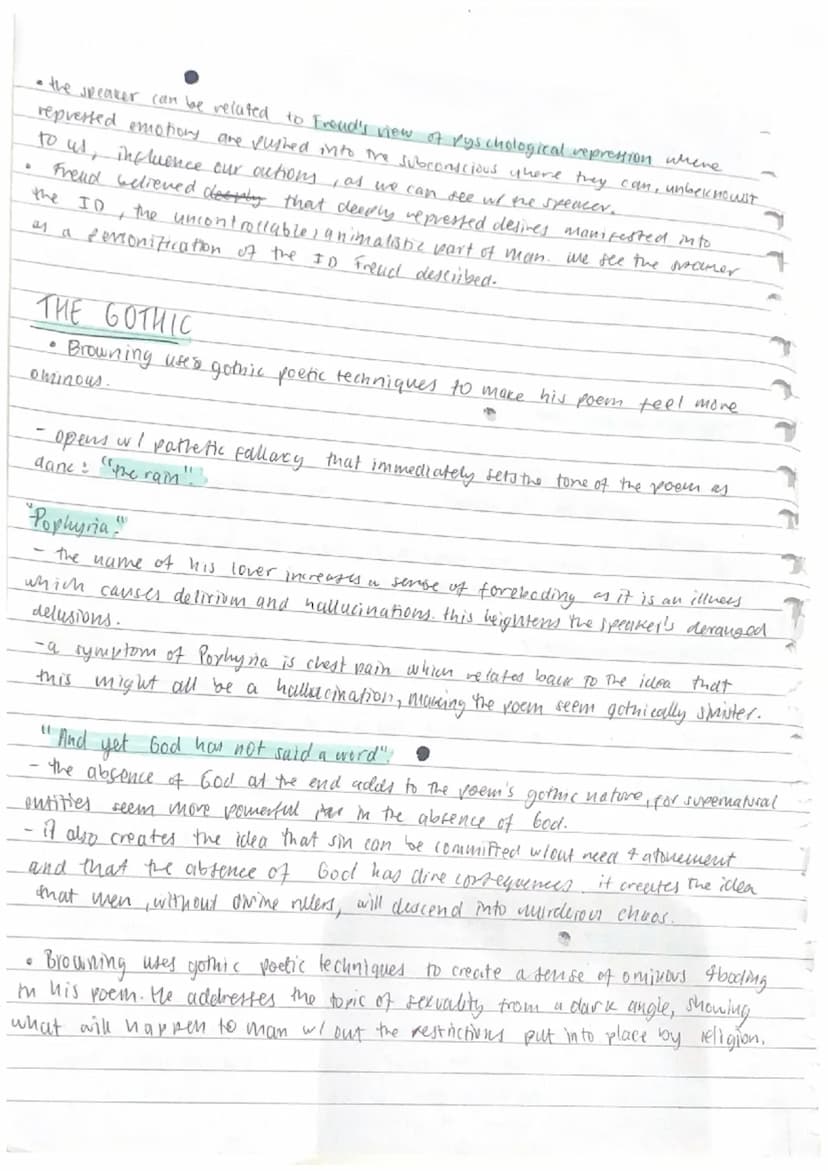 • the speaker can be related to Freud's view of pyschological repression where
repressed emotions are pushed into the subconscious where they can, unbeknownst
to us, influence our actions, as we can see w/ the speaker.
• Freud believed deeply that deeply repressed desires manifested into
the ID, the uncontrollable, animalistic part of man. we see the speaker
as a personification of the ID Freud described.
THE GOTHIC
• Browning uses gothic poetic techniques to make his poem feel more
ominous.
- opens w/ pathetic fallacy that immediately sets the tone of the poem as
dark: "the rain".
"Pophyria."
- the name of his lover increases a sense of foreboding as it is an illness
which causes delirium and hallucinations. this heightens the speaker's deranged
delusions.
- a symptom of Porhyria is chest pain which relates back to the idea that
this might all be a hallucination, making the poem seem gothically sinister.
"And yet God has not said a word".
- the absence of God at the end adds to the poem's gothic nature, for supernatural
entities seem more powerful in the absence of God.
- it also creates the idea that sin can be committed w/out need 4 atonement
and that the absence of God has dire consequences. it creates the idea
that men, without divine rulers, will descend into murderous chaos.
• Browning uses gothic poetic techniques to create a sense of ominous 4boding
in his poem. He addresses the topic of sexuality from a dark angle, showing
what will happen to man w/out the restrictions put into place by religion.